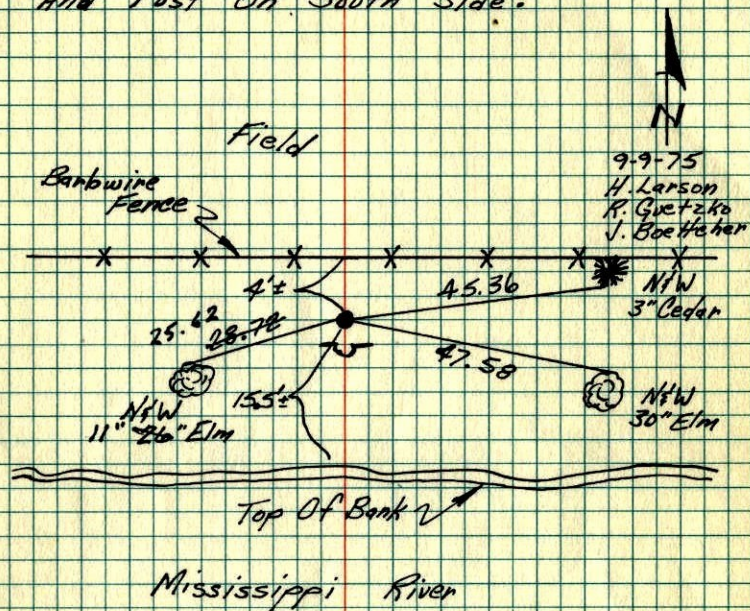 And Post On South Side.
N
Field
9-9-75
H. Larson
R. Guetzko
J. Boettcher
Barbwire
Fence
4'±
45.36
N&W
3" Cedar
25.62 28.72
47.58
15.5'±
N&W
11" 26" Elm
N&W
30" Elm
Top Of Bank
Mississippi River